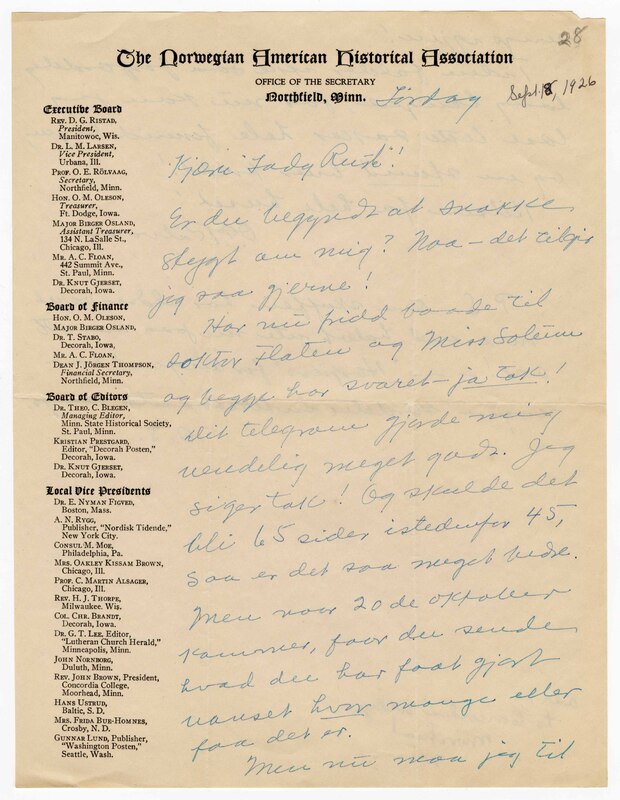 28
The Norwegian American Historical Association
OFFICE OF THE SECRETARY
Northfield, Minn.
Lördag
Sept. 18, 1926
Executive Board
REV. D. G. RISTAD,
President,
Manitowoc, Wis.
DR. L. M. LARSEN,
Vice President,
Urbana, Ill.
PROF. O. E. RÖLVAAG,
Secretary,
Northfield, Minn.
HON. O. M. OLESON,
Treasurer,
Ft. Dodge, Iowa.
MAJOR BIRGER OSLAND,
Assistant Treasurer,
134 N. LaSalle St.,
Chicago, Ill.
MR. A. C. FLOAN,
442 Summit Ave.,
St. Paul, Minn.
DR. KNUT GJERSET,
Decorah, Iowa.
Board of Finance
HON. O. M. OLESON,
MAJOR BIRGER OSLAND,
DR. T. STABO,
Decorah, Iowa,
MR. A. C. FLOAN,
DEAN J. JÖRGEN THOMPSON,
Financial Secretary,
Northfield, Minn.
Board of Editors
DR. THEO. C. BLEGEN,
Managing Editor,
Minn. State Historical Society,
St. Paul, Minn.
KRISTIAN PRESTGARD,
Editor, "Decorah Posten,"
Decorah, Iowa.
DR. KNUT GJERSET,
Decorah, Iowa.
Local Vice Presidents
DR. E. NYMAN FIGVED,
Boston, Mass.
A. N. RYGG,
Publisher, "Nordisk Tidende,"
New York City.
CONSUL M. MOE,
Philadelphia, Pa.
MRS. OAKLEY KISSAM BROWN,
Chicago, Ill.
PROF. C. MARTIN ALSAGER,
Chicago, Ill.
REV. H. J. THORPE,
Milwaukee. Wis.
COL. CHR. BRANDT,
Decorah, Iowa.
DR. G. T. LEE, Editor,
"Lutheran Church Herald,"
Minneapolis, Minn.
JOHN NORNBORG,
Duluth, Minn.
REV. JOHN BROWN, President,
Concordia College,
Moorhead, Minn.
HANS USTRUD,
Baltic, S. D.
MRS. FRIDA BUE-HOMNES,
Crosby, N. D.
GUNNAR LUND, Publisher,
"Washington Posten,"
Seattle, Wash.
Kjære "Lady Rusk"!
Er du begyndt at snakke
stygt om mig? Naa – det tilgir
jeg saa gjerne!
Har nu bidd baade til
doktor Flaten og Miss Solem
og begge har svaret – ja tak!
Dit telegram gjorde mig
uendelig meget godt. Jeg
siger tak! Og skulde det
bli 65 sider istedenfor 45,
saa er det saa meget bedre.
Men naar 20de oktober
kommer, faar du sende
hvad du har faat gjort
uanset hvor mange eller
faa det er.
Men nu maa jeg til